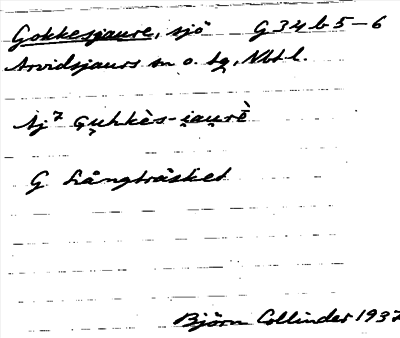 Gokkesjaure, sjö G34b5-6
Arvidsjaurs sn o. tg, Nbtl.
Aj⁷ Gu̯hkès-i̯au̯rè
G Långträsket
Björn Collinder 1937